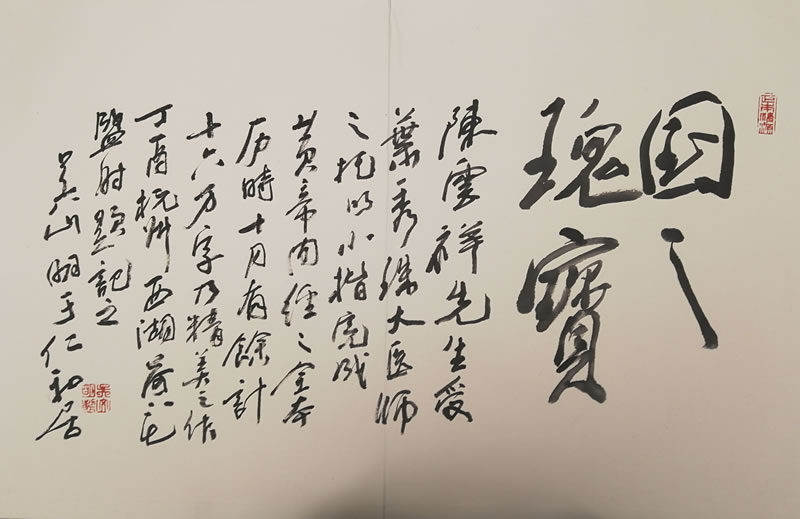 国之
瑰寶
陳雲祥先生受
葉秀珠大医师
之托以小楷完成
黄帝内經之全本
历時十月有餘计
十六万字乃精美之作
丁酉杭州西湖荷花
盛时题記之
吴山明于仁和居